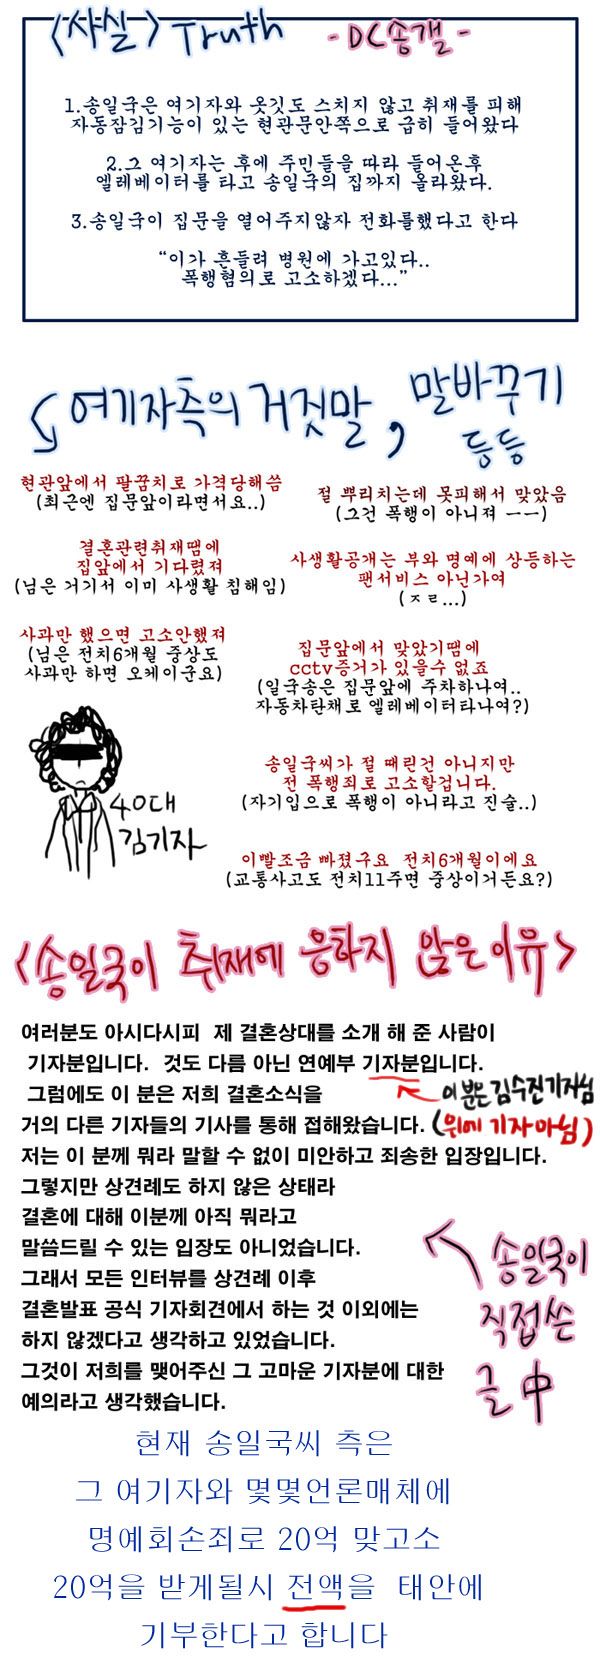 <사실> Truth -DC송갤-
1.송일국은 여기자와 옷깃도 스치지 않고 취재를 피해
자동잠김기능이 있는 현관문안쪽으로 급히 들어왔다
2.그 여기자는 후에 주민들을 따라 들어온후
엘레베이터를 타고 송일국의 집까지 올라왔다.
3.송일국이 집문을 열어주지않자 전화를했다고 한다
“이가 흔들려 병원에 가고있다..
폭행혐의로 고소하겠다...”
여기자측의 거짓말, 말바꾸기
등등
현관앞에서 팔꿈치로 가격당해씀
(최근엔 집문앞이라면서요..)
절 뿌리치는데 못피해서 맞았음
(그건 폭행이 아니져 ㅡㅡ)
결혼관련취재땜에
집앞에서 기다렸져
(님은 거기서 이미 사생활 침해임)
사생활공개는 부와 명예에 상등하는
팬서비스 아닌가여
(ㅈㄹ...)
사과만 했으면 고소안했져
(님은 전치6개월 중상도
사과만 하면 오케이군요)
집문앞에서 맞았기땜에
cctv증거가 있을수 없죠
(일국송은 집문앞에 주차하나여..
자동차탄채로 엘레베이터타나여?)
40대
김기자
송일국씨가 절 때린건 아니지만
전 폭행죄로 고소할겁니다.
(자기입으로 폭행이 아니라고 진술..)
이빨조금 빠졌구요 전치6개월이에요
(교통사고도 전치11주면 중상이거든요?)
<송일국이 취재에 응하지 않은이유>
여러분도 아시다시피 제 결혼상대를 소개 해 준 사람이
기자분입니다. 것도 다름 아닌 연예부 기자분입니다.
그럼에도 이 분은 저희 결혼소식을
이분은 김수진기자님
거의 다른 기자들의 기사를 통해 접해왔습니다.
(위에 기자아님)
저는 이 분께 뭐라 말할 수 없이 미안하고 죄송한 입장입니다.
그렇지만 상견례도 하지 않은 상태라
결혼에 대해 이분께 아직 뭐라고
말씀드릴 수 있는 입장도 아니었습니다.
그래서 모든 인터뷰를 상견례 이후
결혼발표 공식 기자회견에서 하는 것 이외에는
하지 않겠다고 생각하고 있었습니다.
그것이 저희를 맺어주신 그 고마운 기자분에 대한
예의라고 생각했습니다.
송일국이
직접쓴
글中
현재 송일국씨 측은
그 여기자와 몇몇언론매체에
명예회손죄로 20억 맞고소
20억을 받게될시 전액을 태안에
기부한다고 합니다